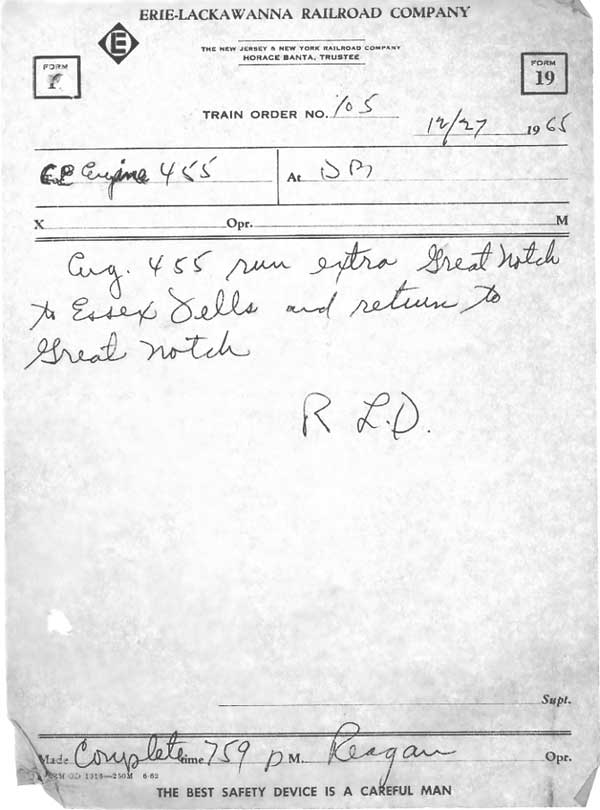 ERIE-LACKAWANNA RAILROAD COMPANY
E
THE NEW JERSEY & NEW YORK RAILROAD COMPANY
HORACE BANTA, TRUSTEE
FORM
FORM
19
TRAIN ORDER NO. 105
12/27 1965
Engine 455 At DB
X Opr. M
Eng. 455 run extra Great Notch
to Essex Fells and return to
Great Notch
R L.D.
Supt.
Made Complete time 759 P M. Reagan Opr.
6-62
THE BEST SAFETY DEVICE IS A CAREFUL MAN